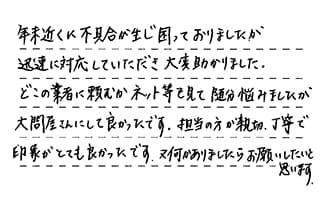 年末近くに不具合が生じ困っておりましたが
迅速に対応していただき大変助かりました.
どこの業者に頼むかネット等で見て随分悩みましたが
大問屋さんにして良かったです. 担当の方が親切、丁寧で
印象がとても良かったです. 又何かありましたらお願いしたいと
思います.